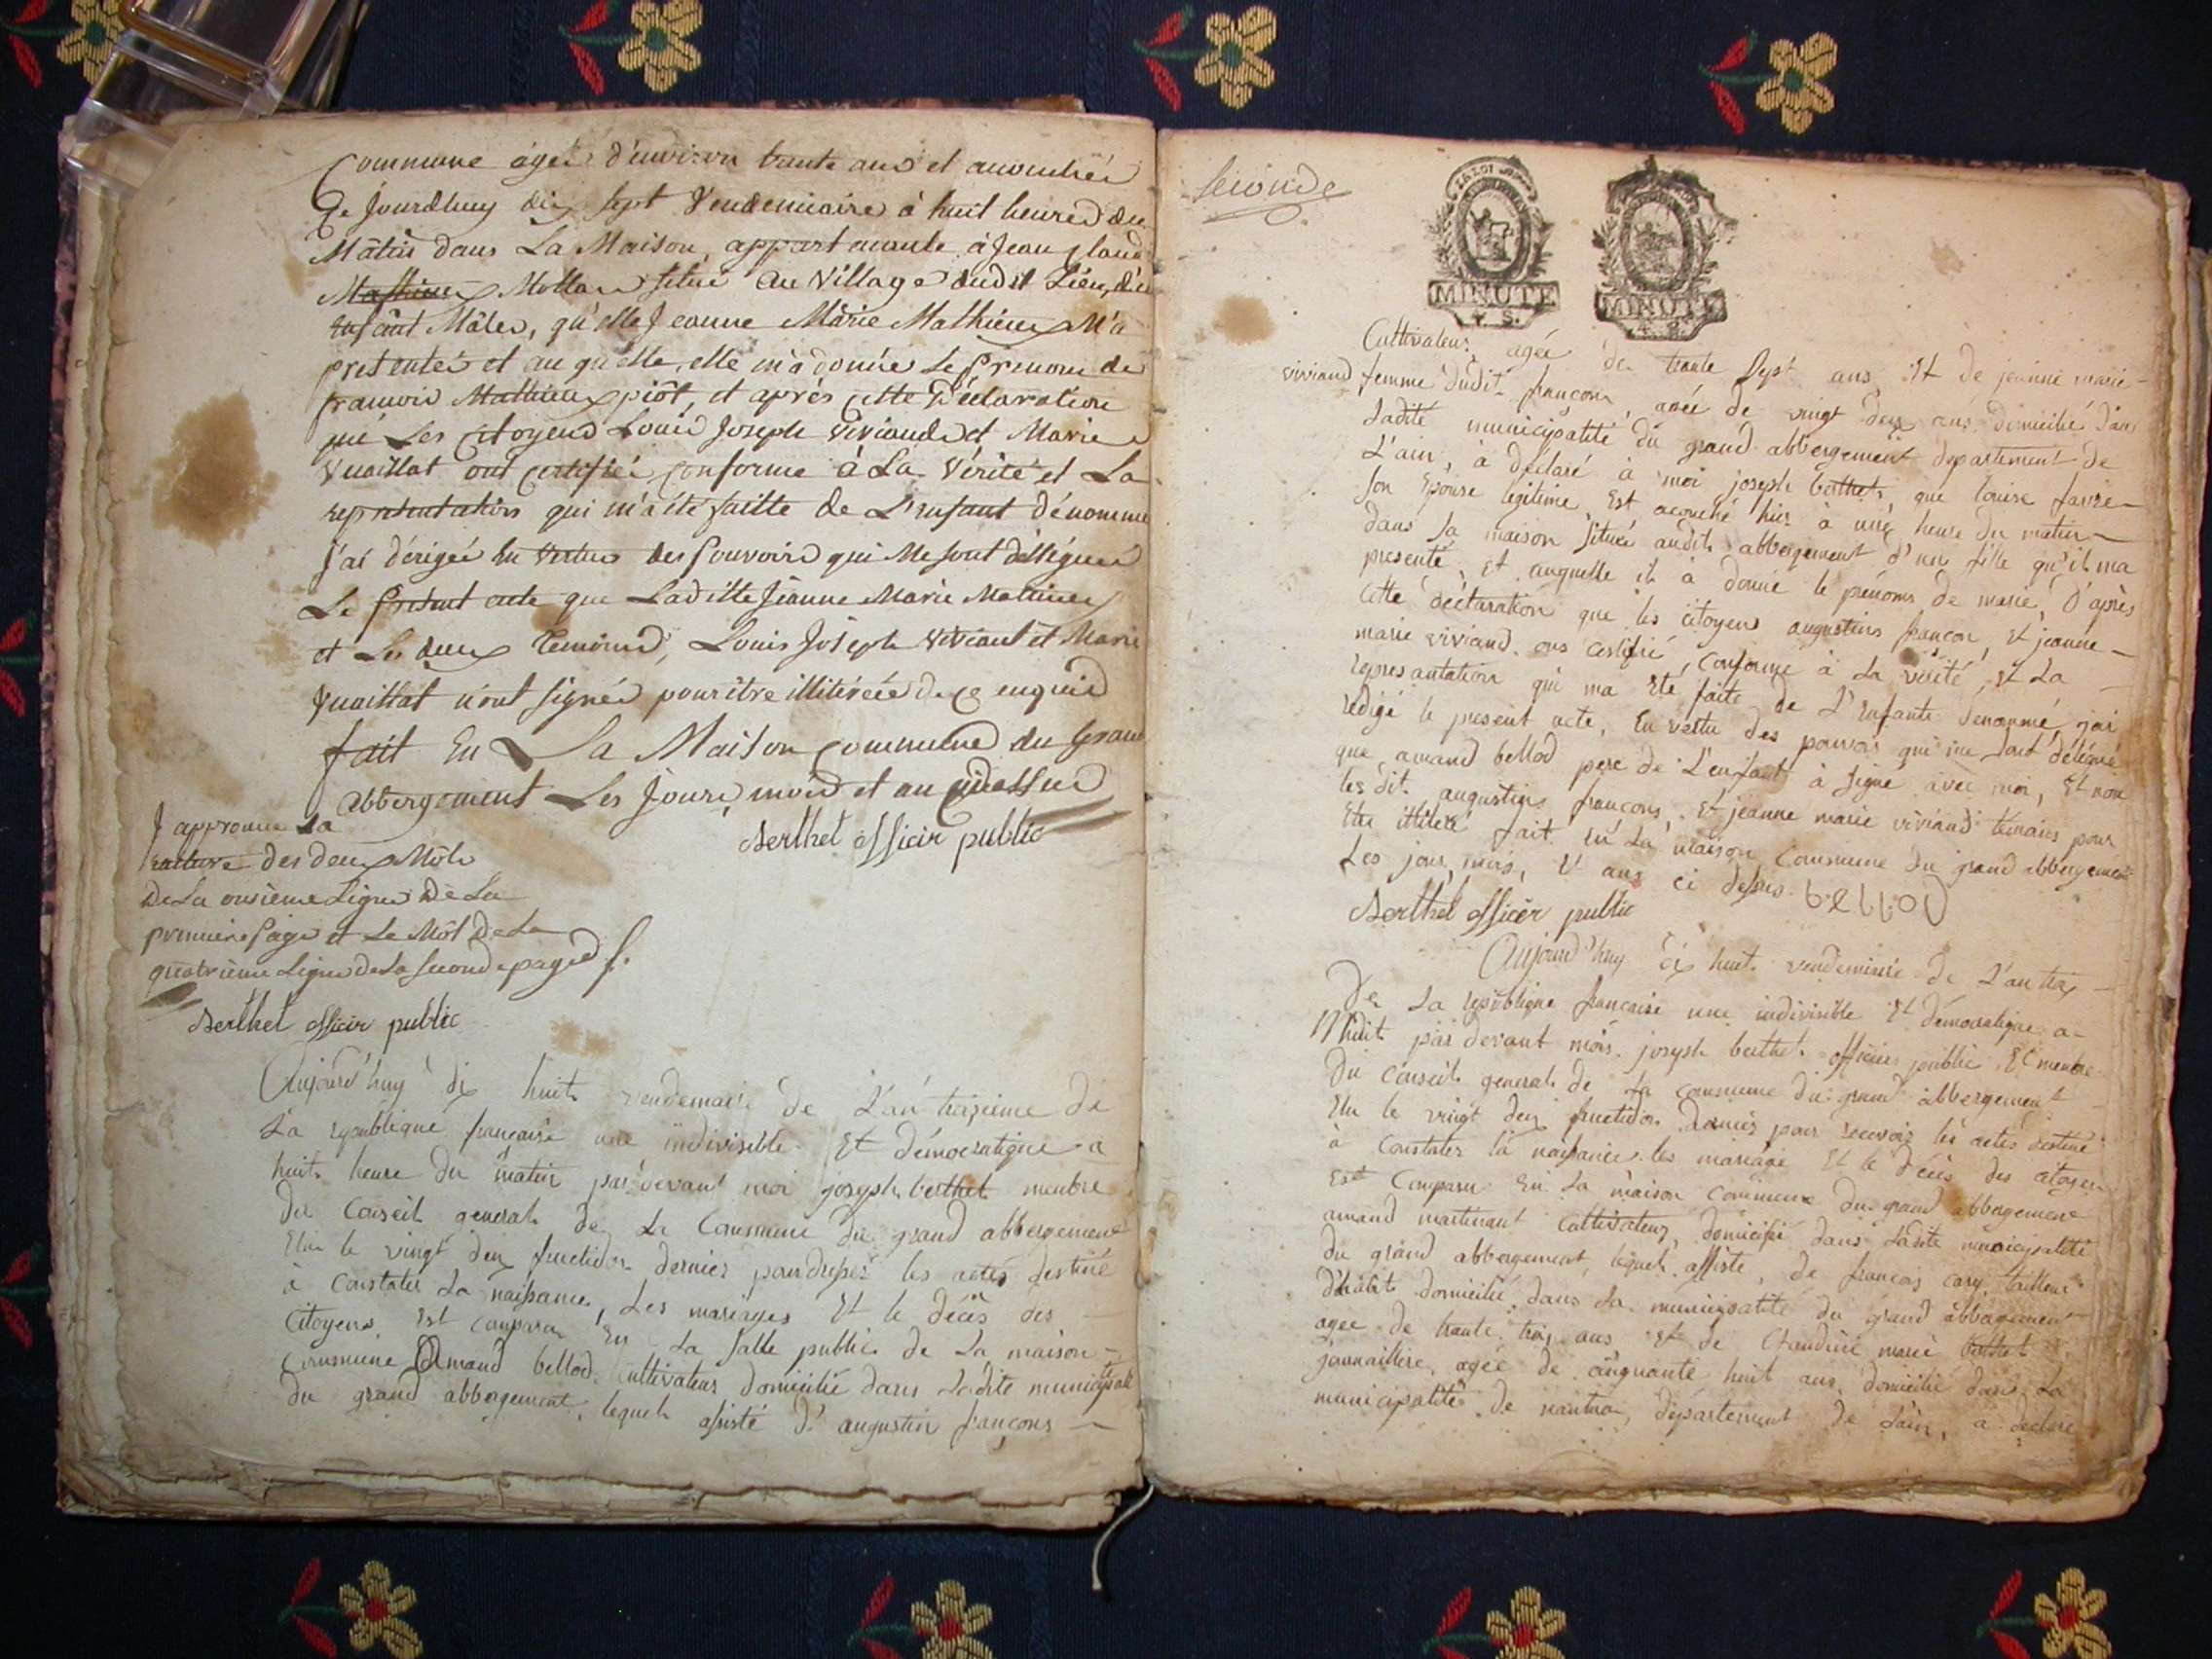 Commune agée d'environ trante ans et acouchée
Ce Jourdhuy dix sept Vendemiaire à huit heures du
Mâtin dans La Maison, appartenante à Jean Claude
Mathieux Mollard situé au Village dudit Lieu, d'un
enfant Mâle, qu'elle Jeanne Mârie Mathieux M'a
presentée et au quelle, elle m'a donnée Le Prenom de
francois Mathieux piôt, et aprés cette Déclaration
que Les Citoyens Louis Joseph Viviand et Marie
Vuaillat ont certifiée conforme à La Vérité et La
representation qui m'a été faitte de L'enfant dénommé
j'ai dérigée en Vertus des Pouvoirs qui Me sont déllégués
Le Present acte que Laditte Jeanne Marie Mathieux
et Les deux Temoins, Louis Joseph Viviant et Marie
Vuaillat n'ont signée pour être illitérée de ce enquis
fait En La Maison commune du Grand
abbergement Les Jours, mois et an cidessus
Berthet officier public
J approuve La
rature des deux Môts
De La onsieme Ligne De La
premiere Page et Le Môt De La
quatrieme Ligne de La seconde page
Berthet officier public
Aujourd'huy dix huit vendemaire de L'an treizieme de
La republique francaise une indivisible Et démocratique a
huit heure du matin par devant moi joseph berthet membre
du Conseil general de La Commune du grand abbergement
Elu le vingt deux fructidor dernier pour dresser les actes destiné
à Constater La naissance, Les mariages Et le décès des
Citoyens Est comparu En La salle public de La maison
Commune Amand bellod Cultivateur domicilié dans Ladite municipalité
du grand abbergement, lequel assisté d'augustin françons
seconde
MINUTE
MINUTE
Cultivateur agée de trante sept ans Et de jeanne marie
viviand femme dudit françon, agée de vingt deux ans domicilié dans
Ladite municipalité du grand abbergement departement de
L'ain, à déclaré à moi joseph berthet, que louise favre
son Epouse legitime, Est acouché hier à une heure du matin
dans sa maison située audit abbergement d'une fille qu'il ma
presenté, Et auquelle il à donné le prénoms de marie, D'aprés
Cette déclaration que les citoyens augustins françon, Et jeanne
marie viviand ons certifié, Conforme à La vérité, Et La
representation qui ma Eté faite de L'Enfante denommé, jai
redigé le present acte, En vertu des pouvoirs qui me sont délégué
que amand bellod pere de L'enfant à signé avec moi, Et non
les dit augustins françons, Et jeanne marie viviand temoins pour
Etre illiteré fait En La maison Commune du grand abbergement
Les jour, mois, & ans ci dessus. bellod
Berthet officier public
Aujourd'huy dix huit vendemiaire de L'an trex
De La republique francaise une indivisible Et démocratique a
Midit par devant mois joseph berthet officier public Et membre
du Conseil general de La commune du grand abbergement
Elu le vingt deux fructidor dernier pour recevoir les actes destiné
à Constater la naissance les mariage Et le décès des citoyen
Est Comparu En La maison Commune du grand abbergement
amand martinant Cultivateur, domicilié dans Ladite municipalité
du grand abbergement, lequel assisté, de françois cary, tailleur
d'habit domicilié dans La municipalité du grand abbergement
agee de trante trois ans Et de Claudine marie berthet
journaillere, agée de cinquante huit ans domicilié dans La
municipalité de nantua, département de Lain, a declaré